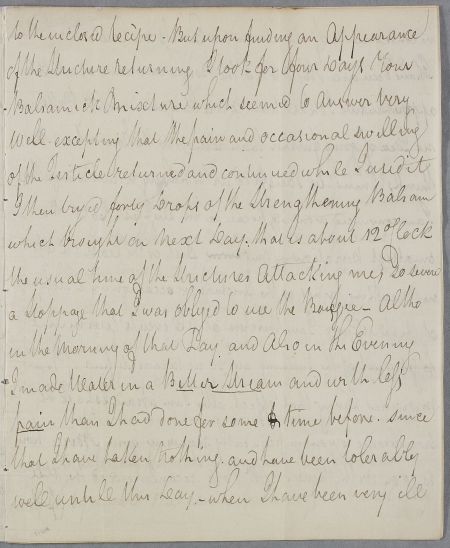 to the inclosed recipe. But upon finding an Appearance
of the Stricture returning I took for four Days Your
Balsamick Mixture which seemed to answer very
Well excepting that the pain and occasional swelling
of the Testicle returned and continued while I used it
I then tryed forty Drops of the Strengthening Balsam
which brought on Next Day, that is about 12 o'Clock
the usual time of the Strictures Attacking me, So severe
a stoppage that I was oblyged to use the Bougie - Altho
in the Morning of that Day and Also in the Evening
I made Water in a Better Stream and with less
pain than I had done for some time before. since
that I have taken Nothing, and have been tolerably
well, untile this Day, - when I have been very ill